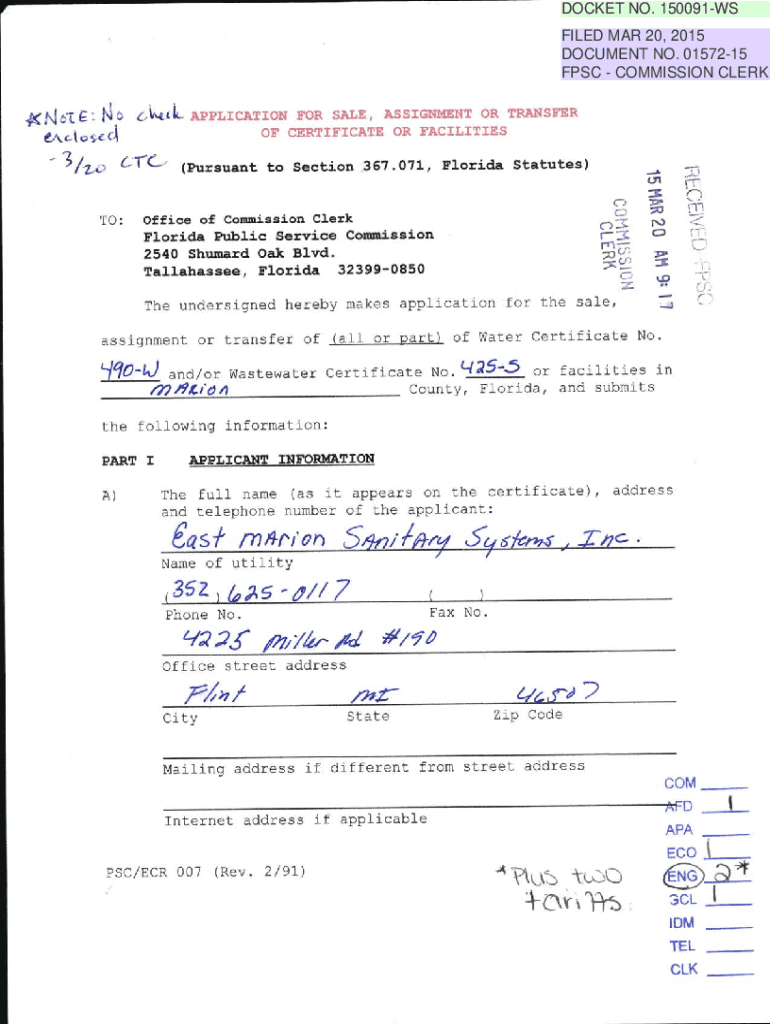 DOCKET NO. 150091-WS
FILED MAR 20, 2015
DOCUMENT NO. 01572-15
FPSC - COMMISSION CLERK
*NOTE: No check enclosed
- 3/20 CTC
APPLICATION FOR SALE, ASSIGNMENT OR TRANSFER
OF CERTIFICATE OR FACILITIES
(Pursuant to Section 367.071, Florida Statutes)
RECEIVED-FPSC
15 MAR 20 AM 9:17
COMMISSION
CLERK
TO: Office of Commission Clerk
Florida Public Service Commission
2540 Shumard Oak Blvd.
Tallahassee, Florida 32399-0850
The undersigned hereby makes application for the sale,
assignment or transfer of (all or part) of Water Certificate No.
490-W and/or Wastewater Certificate No. 425-S or facilities in
MARION County, Florida, and submits
the following information:
PART I APPLICANT INFORMATION
A) The full name (as it appears on the certificate), address
and telephone number of the applicant:
East MArion SAnitAry Systems, Inc.
Name of utility
(352) 625-0117 ( )
Phone No. Fax No.
4225 Miller Rd #190
Office street address
Flint MI 46507
City State Zip Code
Mailing address if different from street address
Internet address if applicable
PSC/ECR 007 (Rev. 2/91)
*Plus two
tariffs
COM
AFD 1
APA
ECO 1
ENG 2*
GCL 1
IDM
TEL
CLK